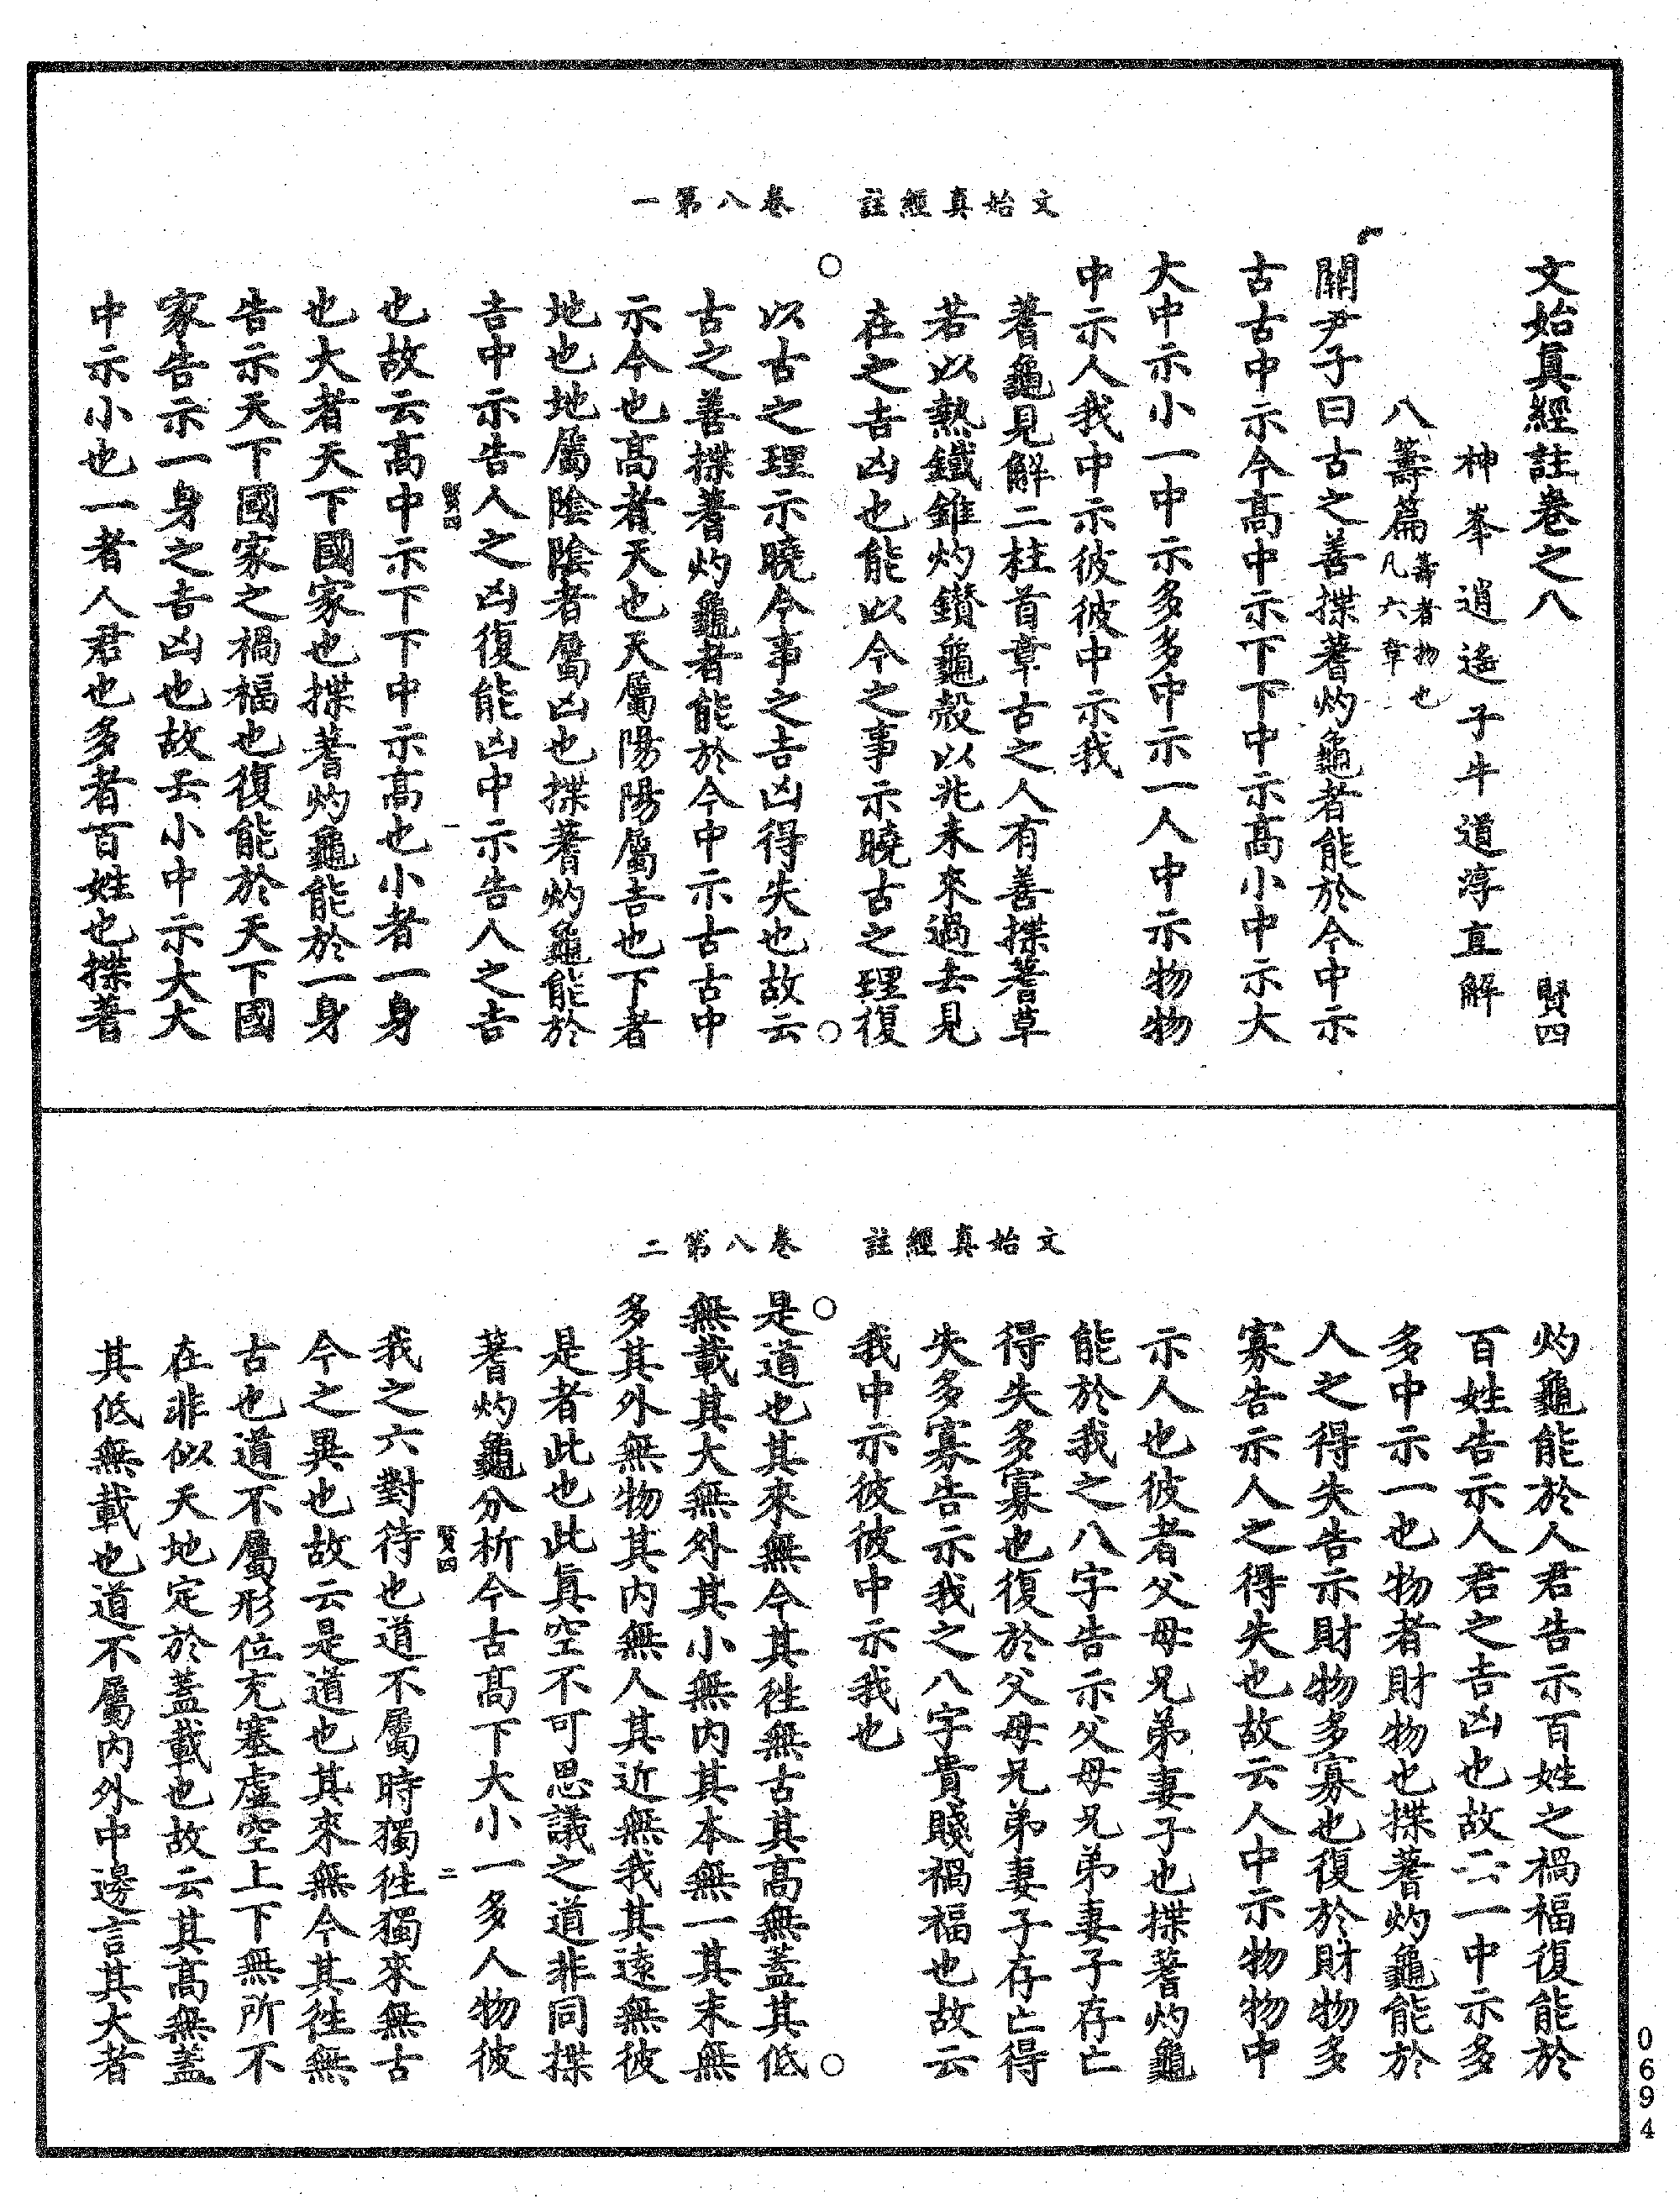 文始真經註　卷八第一
文始眞經註卷之八　賢四
神峯逍遙子牛道淳直解
八籌篇籌者物也凡六章
關尹子曰古之善揲蓍灼龜者能於今中示
古古中示今高中示下下中示高小中示大
大中示小一中示多多中示一人中示物物
中示人我中示彼彼中示我
蓍龜見解二柱首章古之人有善揲蓍草
若以熱鐵錐灼鑚龜殻以兆未來過去見
在之吉凶也能以今之事示曉古之理復
以古之理示曉今事之吉凶得失也故云
古之善揲蓍灼龜者能於今中示古古中
示今也高者天也天屬陽陽屬吉也下者
地也地屬陰陰者屬凶也揲蓍灼龜能於
吉中示告人之凶復能凶中示告人之吉
賢四　一
也故云高中示下下中示高也小者一身
也大者天下國家也揲蓍灼龜能於一身
告示天下國家之禍福也復能於天下國
家告示一身之吉凶也故云小中示大大
中示小也一者人君也多者百姓也揲蓍
文始真經註　卷八第二
灼龜能於人君告示百姓之禍福復能於
百姓告示人君之吉凶也故云一中示多
多中示一也物者財物也揲蓍灼龜能於
人之得失告示財物多寡也復於財物多
寡告示人之得失也故云人中示物物中
示人也彼者父母兄弟妻子也揲蓍灼龜
能於我之八字告示父母兄弟妻子存亡
得失多寡也復於父母兄弟妻子存亡得
失多寡告示我之八字貴賤禍福也故云
我中示彼彼中示我也
是道也其來無今其徃無古其高無蓋其低
無載其大無外其小無内其本無一其末無
多其外無物其内無人其近無我其遠無彼
是者此也此眞空不可思議之道非同揲
蓍灼龜分析今古高下大小一多人物彼
賢四　二
我之六對待也道不屬時獨徃獨來無古
今之異也故云是道也其來無今其徃無
古也道不屬形位充塞虛空上下無所不
在非似天地定於蓋載也故云其高無蓋
其低無載也道不屬内外中邊言其大者
0694